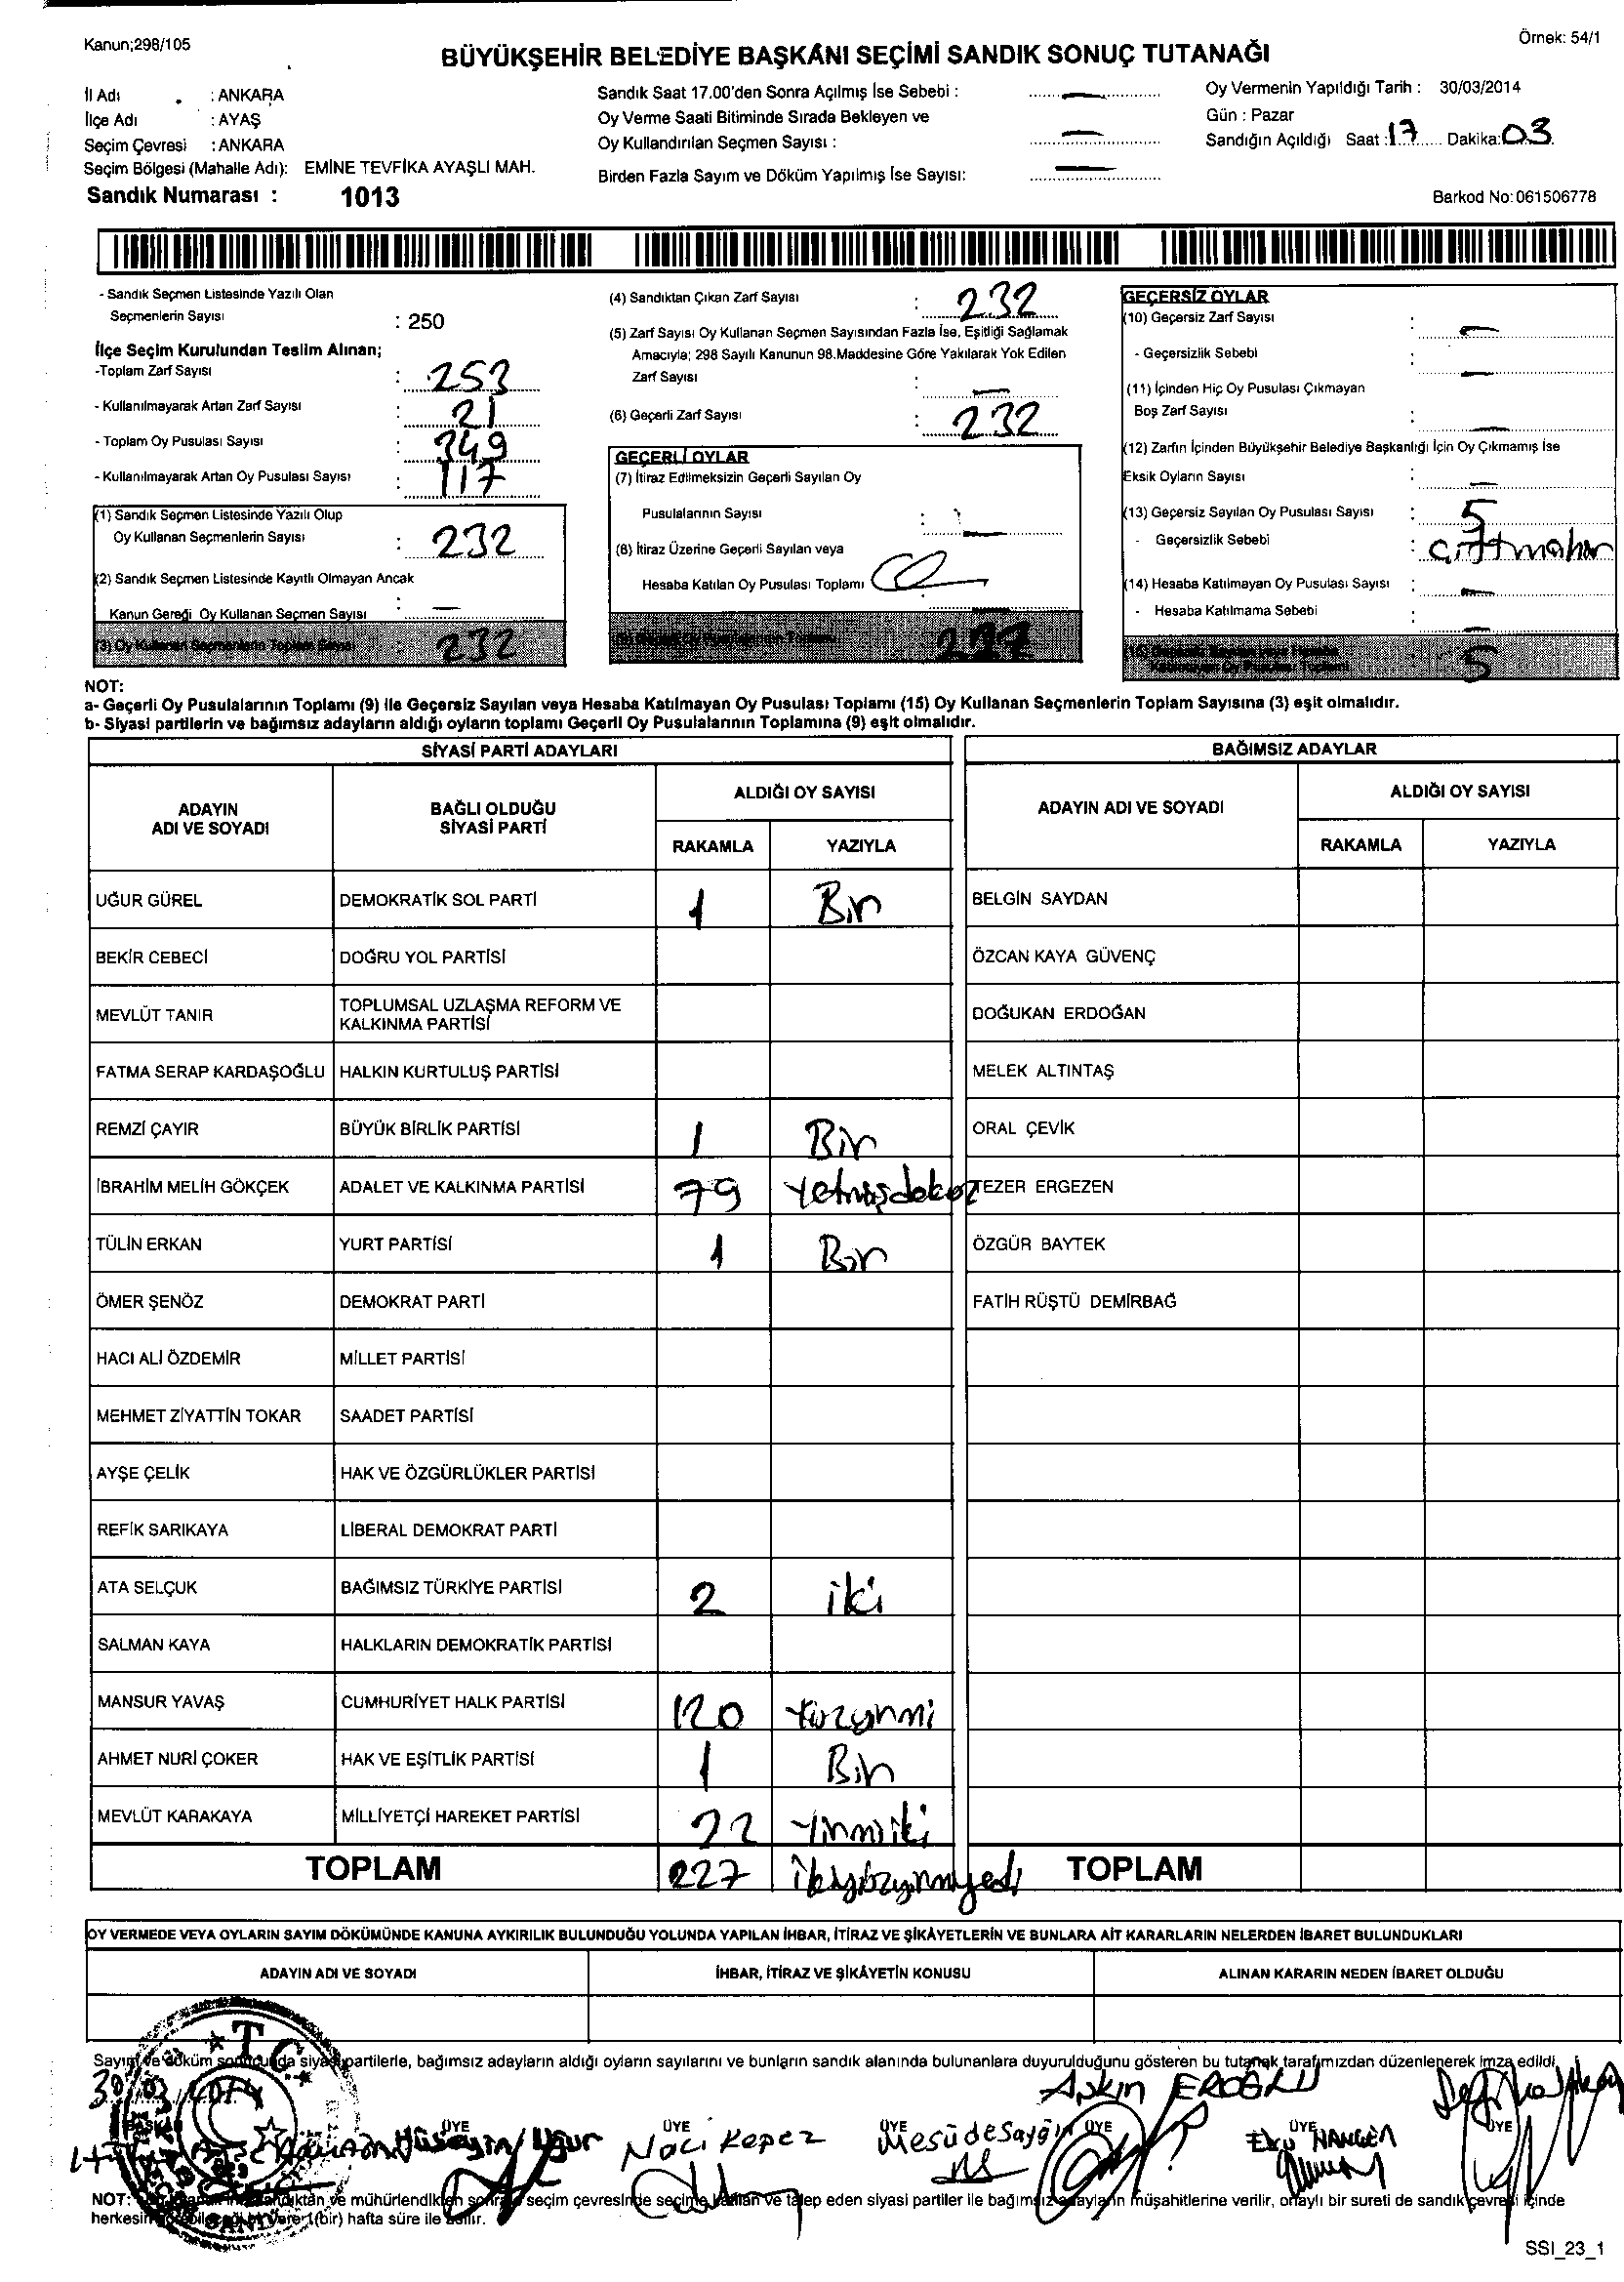 Kanun;298/105
Örnek: 54/1
BÜYÜKŞEHİR BELEDİYE BAŞKANI SEÇİMİ SANDIK SONUÇ TUTANAĞI
İl Adı : ANKARA
İlçe Adı : AYAŞ
Seçim Çevresi : ANKARA
Seçim Bölgesi (Mahalle Adı): EMİNE TEVFİKA AYAŞLI MAH.
Sandık Numarası : 1013
Sandık Saat 17.00'den Sonra Açılmış İse Sebebi : —
Oy Verme Saati Bitiminde Sırada Bekleyen ve
Oy Kullandırılan Seçmen Sayısı : —
Birden Fazla Sayım ve Döküm Yapılmış İse Sayısı: —
Oy Vermenin Yapıldığı Tarih : 30/03/2014
Gün : Pazar
Sandığın Açıldığı Saat : 17 Dakika: 03
Barkod No: 061506778
- Sandık Seçmen Listesinde Yazılı Olan
Seçmenlerin Sayısı : 250
İlçe Seçim Kurulundan Teslim Alınan;
-Toplam Zarf Sayısı : 253
- Kullanılmayarak Artan Zarf Sayısı : 21
- Toplam Oy Pusulası Sayısı : 349
- Kullanılmayarak Artan Oy Pusulası Sayısı : 117
(1) Sandık Seçmen Listesinde Yazılı Olup
Oy Kullanan Seçmenlerin Sayısı : 232
(2) Sandık Seçmen Listesinde Kayıtlı Olmayan Ancak
Kanun Gereği Oy Kullanan Seçmen Sayısı : —
(3) Oy Kullanan Seçmenlerin Toplam Sayısı 232
(4) Sandıktan Çıkan Zarf Sayısı : 232
(5) Zarf Sayısı Oy Kullanan Seçmen Sayısından Fazla İse, Eşitliği Sağlamak
Amacıyla; 298 Sayılı Kanunun 98.Maddesine Göre Yakılarak Yok Edilen
Zarf Sayısı : —
(6) Geçerli Zarf Sayısı : 232
GEÇERLİ OYLAR
(7) İtiraz Edilmeksizin Geçerli Sayılan Oy
Pusulalarının Sayısı : —
(8) İtiraz Üzerine Geçerli Sayılan veya
Hesaba Katılan Oy Pusulası Toplamı
(9) Geçerli Oy Pusulalarının Toplamı 227
GEÇERSİZ OYLAR
(10) Geçersiz Zarf Sayısı : —
- Geçersizlik Sebebi : —
(11) İçinden Hiç Oy Pusulası Çıkmayan
Boş Zarf Sayısı : —
(12) Zarfın İçinden Büyükşehir Belediye Başkanlığı İçin Oy Çıkmamış İse
Eksik Oyların Sayısı : —
(13) Geçersiz Sayılan Oy Pusulası Sayısı : 5
- Geçersizlik Sebebi :
(14) Hesaba Katılmayan Oy Pusulası Sayısı : —
- Hesaba Katılmama Sebebi : —
5
NOT:
a- Geçerli Oy Pusulalarının Toplamı (9) ile Geçersiz Sayılan veya Hesaba Katılmayan Oy Pusulası Toplamı (15) Oy Kullanan Seçmenlerin Toplam Sayısına (3) eşit olmalıdır.
b- Siyasi partilerin ve bağımsız adayların aldığı oyların toplamı Geçerli Oy Pusulalarının Toplamına (9) eşit olmalıdır.
SİYASİ PARTİ ADAYLARI
ADAYIN ADI VE SOYADI BAĞLI OLDUĞU SİYASİ PARTİ ALDIĞI OY SAYISI
RAKAMLA YAZIYLA
UĞUR GÜREL DEMOKRATİK SOL PARTİ 1 Bir
BEKİR CEBECİ DOĞRU YOL PARTİSİ
MEVLÜT TANIR TOPLUMSAL UZLAŞMA REFORM VE
KALKINMA PARTİSİ
FATMA SERAP KARDAŞOĞLU HALKIN KURTULUŞ PARTİSİ
REMZİ ÇAYIR BÜYÜK BİRLİK PARTİSİ 1 Bir
İBRAHİM MELİH GÖKÇEK ADALET VE KALKINMA PARTİSİ 79 Yetmişdokuz
TÜLİN ERKAN YURT PARTİSİ 1 Bir
ÖMER ŞENÖZ DEMOKRAT PARTİ
HACI ALİ ÖZDEMİR MİLLET PARTİSİ
MEHMET ZİYATTİN TOKAR SAADET PARTİSİ
AYŞE ÇELİK HAK VE ÖZGÜRLÜKLER PARTİSİ
REFİK SARIKAYA LİBERAL DEMOKRAT PARTİ
ATA SELÇUK BAĞIMSIZ TÜRKİYE PARTİSİ 2 iki
SALMAN KAYA HALKLARIN DEMOKRATİK PARTİSİ
MANSUR YAVAŞ CUMHURİYET HALK PARTİSİ 120 Yüzyirmi
AHMET NURİ ÇOKER HAK VE EŞİTLİK PARTİSİ 1 Bir
MEVLÜT KARAKAYA MİLLİYETÇİ HAREKET PARTİSİ 22 Yirmiiki
TOPLAM 227 ikiyüzyirmiyedi
BAĞIMSIZ ADAYLAR
ADAYIN ADI VE SOYADI ALDIĞI OY SAYISI
RAKAMLA YAZIYLA
BELGİN SAYDAN
ÖZCAN KAYA GÜVENÇ
DOĞUKAN ERDOĞAN
MELEK ALTINTAŞ
ORAL ÇEVİK
TEZER ERGEZEN
ÖZGÜR BAYTEK
FATİH RÜŞTÜ DEMİRBAĞ
TOPLAM
OY VERMEDE VEYA OYLARIN SAYIM DÖKÜMÜNDE KANUNA AYKIRILIK BULUNDUĞU YOLUNDA YAPILAN İHBAR, İTİRAZ VE ŞİKÂYETLERİN VE BUNLARA AİT KARARLARIN NELERDEN İBARET BULUNDUKLARI
ADAYIN ADI VE SOYADI İHBAR, İTİRAZ VE ŞİKÂYETİN KONUSU ALINAN KARARIN NEDEN İBARET OLDUĞU
Sayım ve döküm sonucunda siyasi partilerle, bağımsız adayların aldığı oyların sayılarını ve bunların sandık alanında bulunanlara duyurulduğunu gösteren bu tutanak tarafımızdan düzenlenerek imza edildi
T.C.
30/03/2014
Aşkın EROĞLU
BAŞKAN ÜYE ÜYE ÜYE ÜYE ÜYE ÜYE
Hüseyin Uğur Naci Kepez Mesude
NOT: mühürlendikten sonra seçim çevresinde seçime katılan ve talep eden siyasi partiler ile bağımsız adayların müşahitlerine verilir, onaylı bir sureti de sandık çevresi içinde
herkesin 1(bir) hafta süre ile asılır.
SSI_23_1